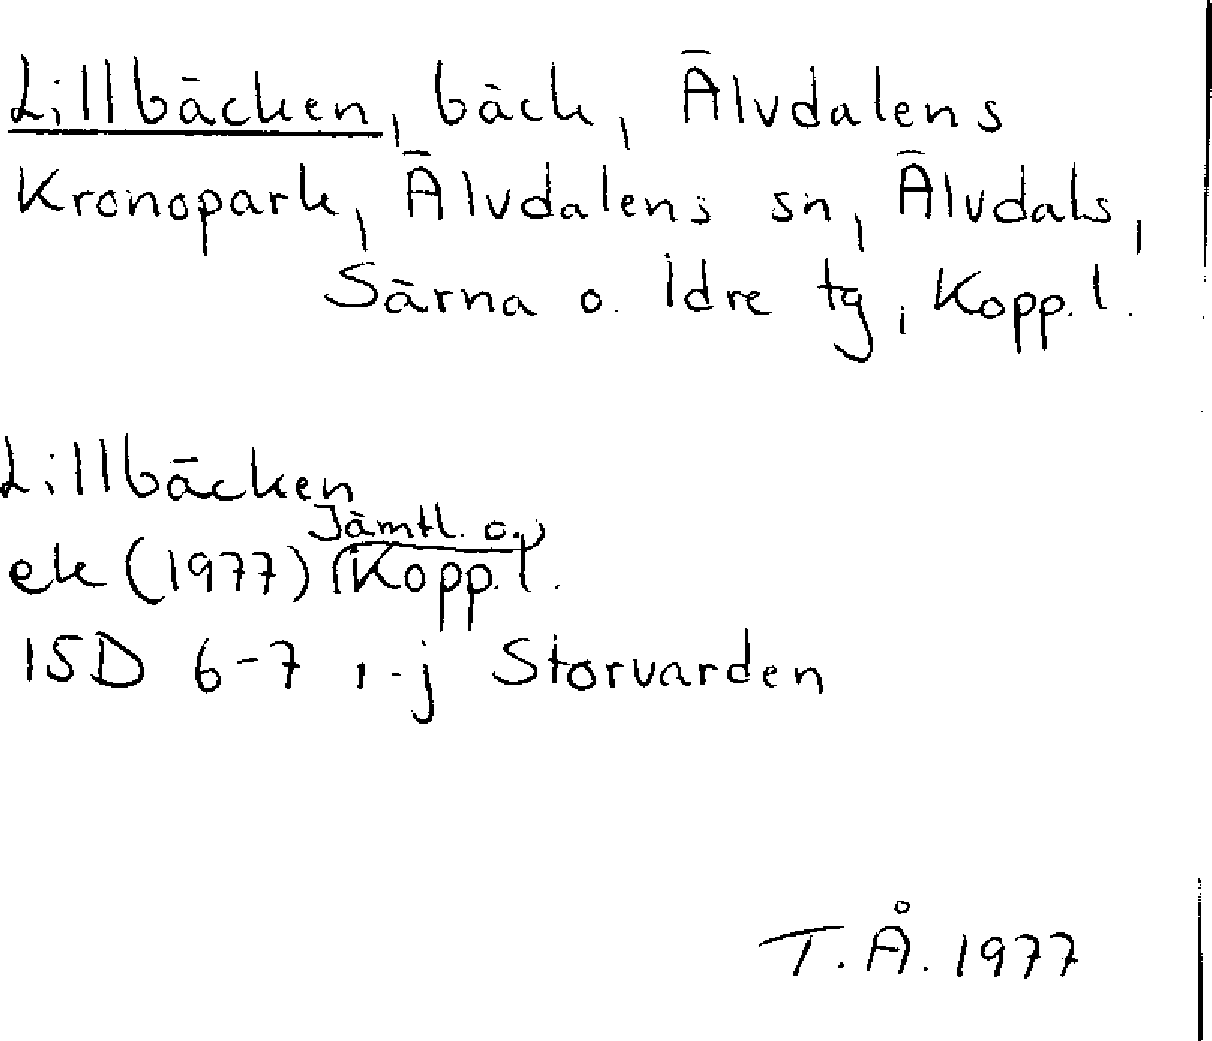 Lillbäcken, bäck, Älvdalens
Kronopark, Älvdalens sn, Älvdals,
Särna o. Idre tg, Kopp. l.
Lillbäcken
Jämtl. o.
ek (1977) Kopp. l.
15D 6-7 i-j Storvarden
T.Å. 1977